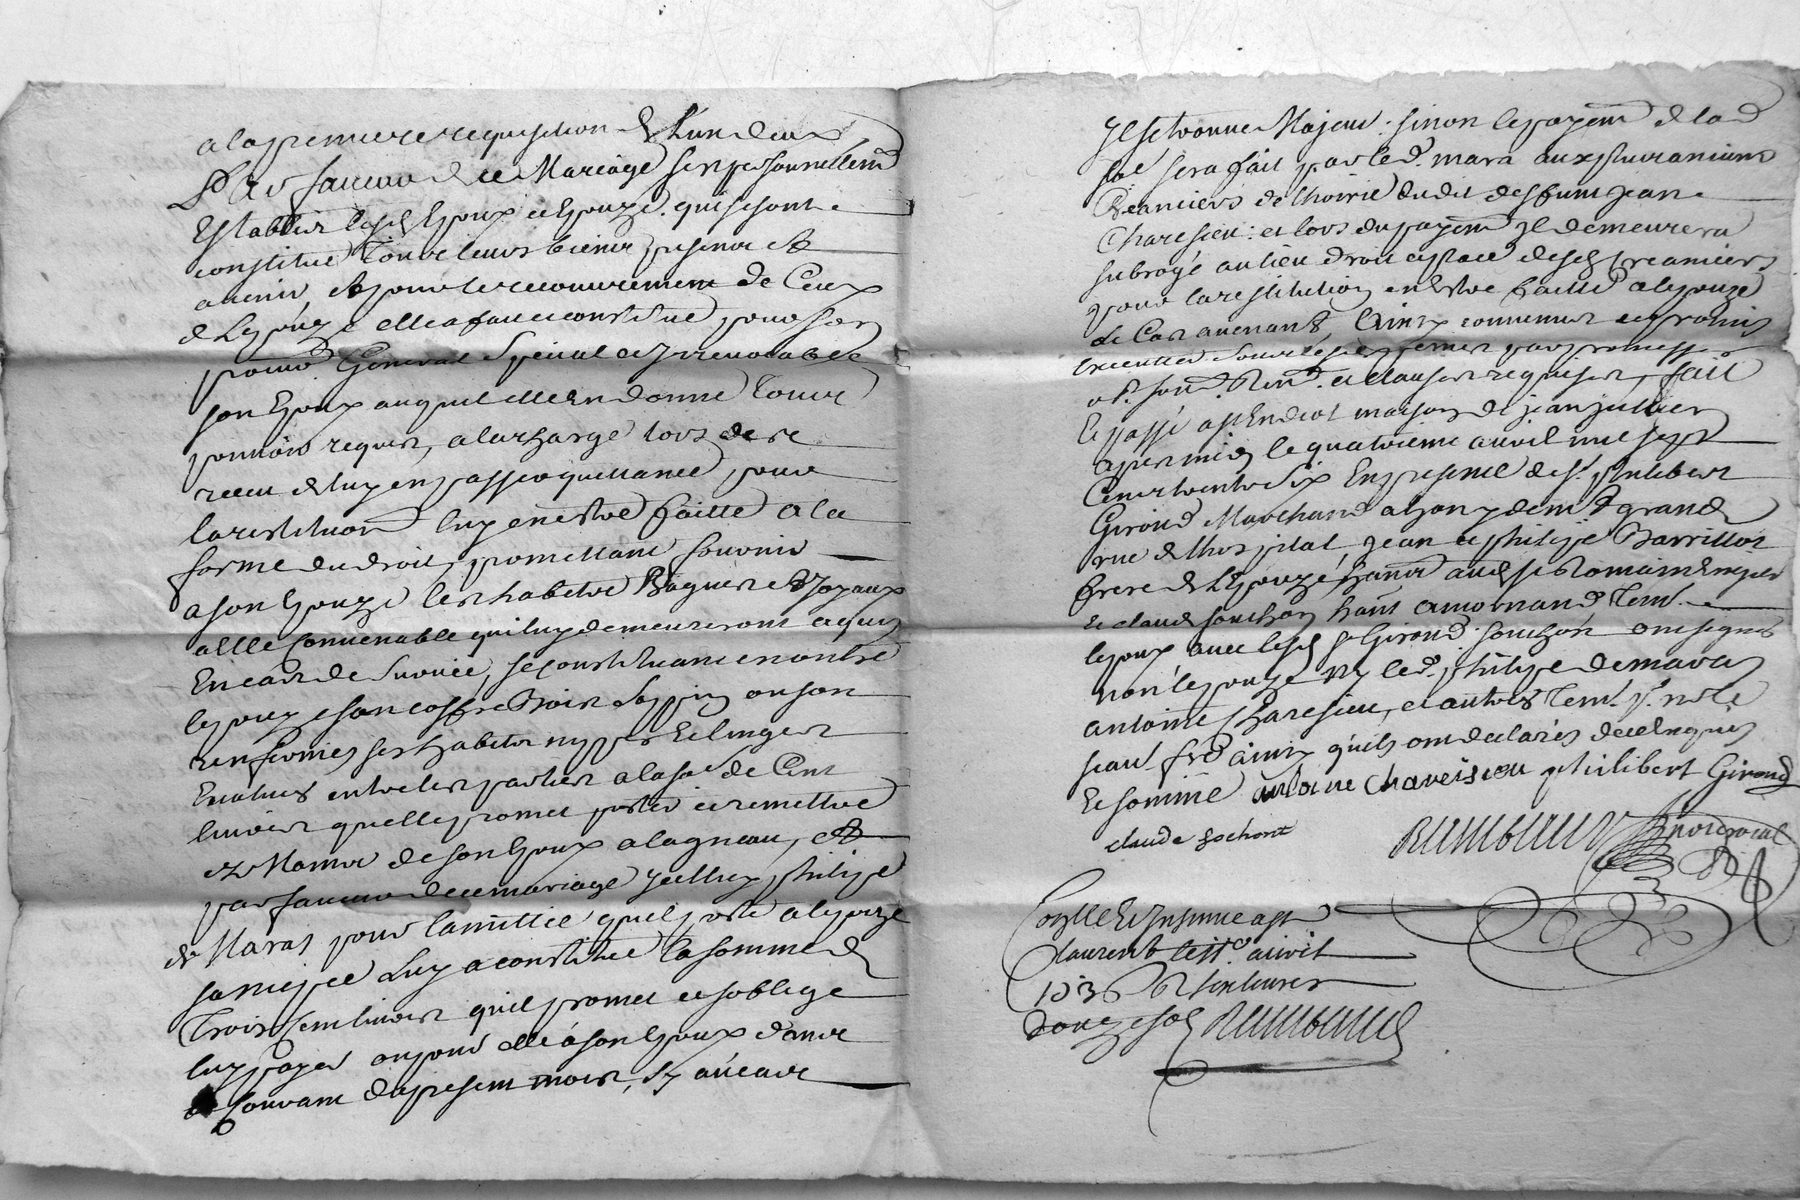 a la premiere requisition de L'un deux
Et en faveur de ce Mariage se sn personnellemt
Establis lesd Epoux et Epouze qui se sont
constitué Tous leurs biens presens et
avenir, et pour le recouvrement de Ceux
de L'Epouze elle a fait et constitué pour son
procur General Special et Irrevocable
son Epoux auquel elle en donne Tous
pouvoirs requis, a la charge lors de ce
receu de luy en passer quittance pour
la restitution luy en estre faitte a la
forme du droit, promettant fournir
a son Epouze les habits Bagues et Joyaux
a elle convenable qui luy demeureront acquis
En cas de Survie, se constituant en outre
lepouze son coffre Bois Sappin ou son
renfermés ses habits nippes et linges
Evalués entre les parties a la soe de Cent
livres quelle promet porter et remettre
ez Mains de son Epoux a lagneau, et
par faveur de ce mariage Icelluy philipe
de Maras pour lamittié quil porte a lepouze
sa niepce Luy a constitué la somme de
Trois Cent livres quil promet et soblige
luy payer ou pour elle a son Epoux dans
le Courant du present mois, Sy au cas
Il se trouve Majeur: sinon le payemt de lad
soe sera fait par led. mara aux plus anciens
Creanciers de lhoirie dudit deffunt jean
Charesieu: et lors du payemt il demeurera
subrogé au lieu droit et place desd Creanciers
pour la restitution en Estre faitte a lepouze
le Cas avenant, Ainsy convenus et promis
executer sous les peines par promesse
obson. Renon. et clauses requises, fait
Et passé a St Endeol maison de jean jullien
apres midy le quatrieme avril mil sept
Cent trente Six En presence de sr. philibert
Giroud Marchand a Lyon y demt grande
rue de lhospital, jean et philipe Barrillot
frere de L'Epouze habit aud St Romain En gier
Et claude souchon habit a mornand Tem.
lepoux avec lesd sr Giroud. souchon ont signés
non lepouze ny led. philipe de maras
antoine Charesieu, et autres Tem. pr. ne le
scavoir fre ainsy quils ont declarés de ce Enquis
Et sommé antoine Chareisieu philibert Giroud
claude sochont
Collé et Insinué a st
laurent le 11e. avril
1736 Rt six livres
douze sols